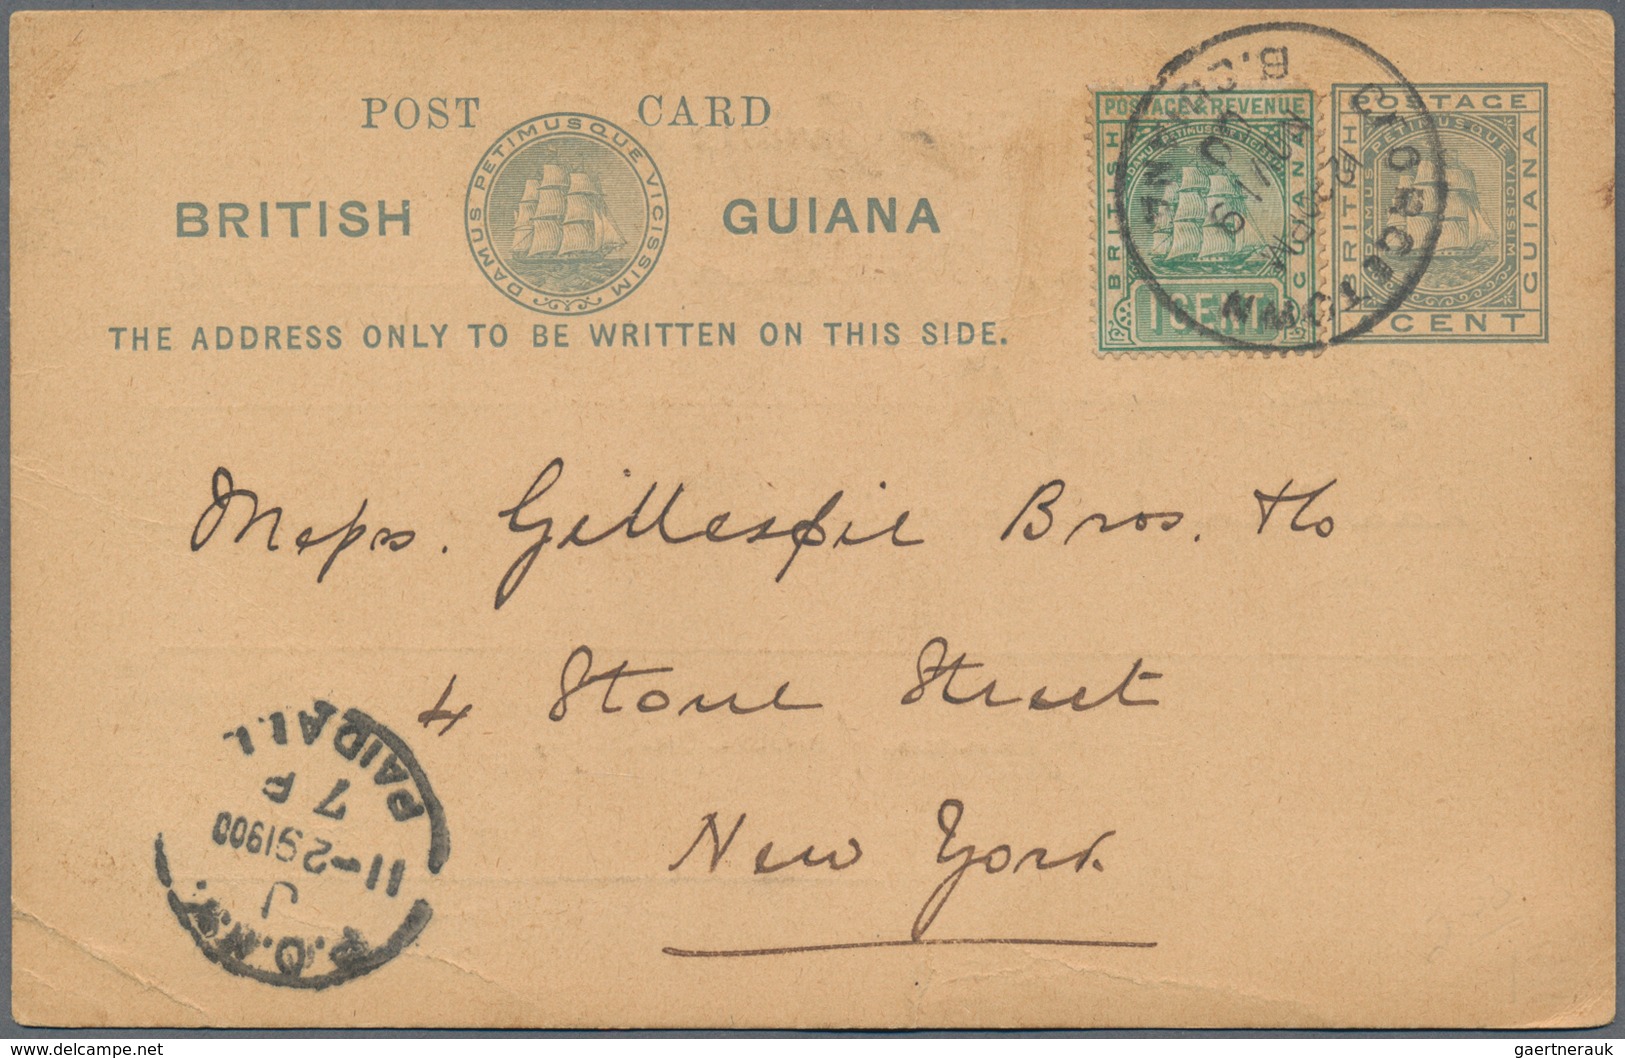 POST CARD
BRITISH GUIANA
DAMUS PETIMUSQUE VICISSIM
THE ADDRESS ONLY TO BE WRITTEN ON THIS SIDE.
POSTAGE & REVENUE
BRITISH
GUIANA
DAMUS PETIMUSQUE VICISSIM
1 CENT
POSTAGE
BRITISH
GUIANA
DAMUS PETIMUSQUE VICISSIM
CENT
GEORGETOWN
Messrs. Gillespie Bros. & Co
4 Stone Street
New York
P.O.N.Y.
J
11-29 1900
7 P
PAID ALL
www.delcampe.net
gaertnerauk